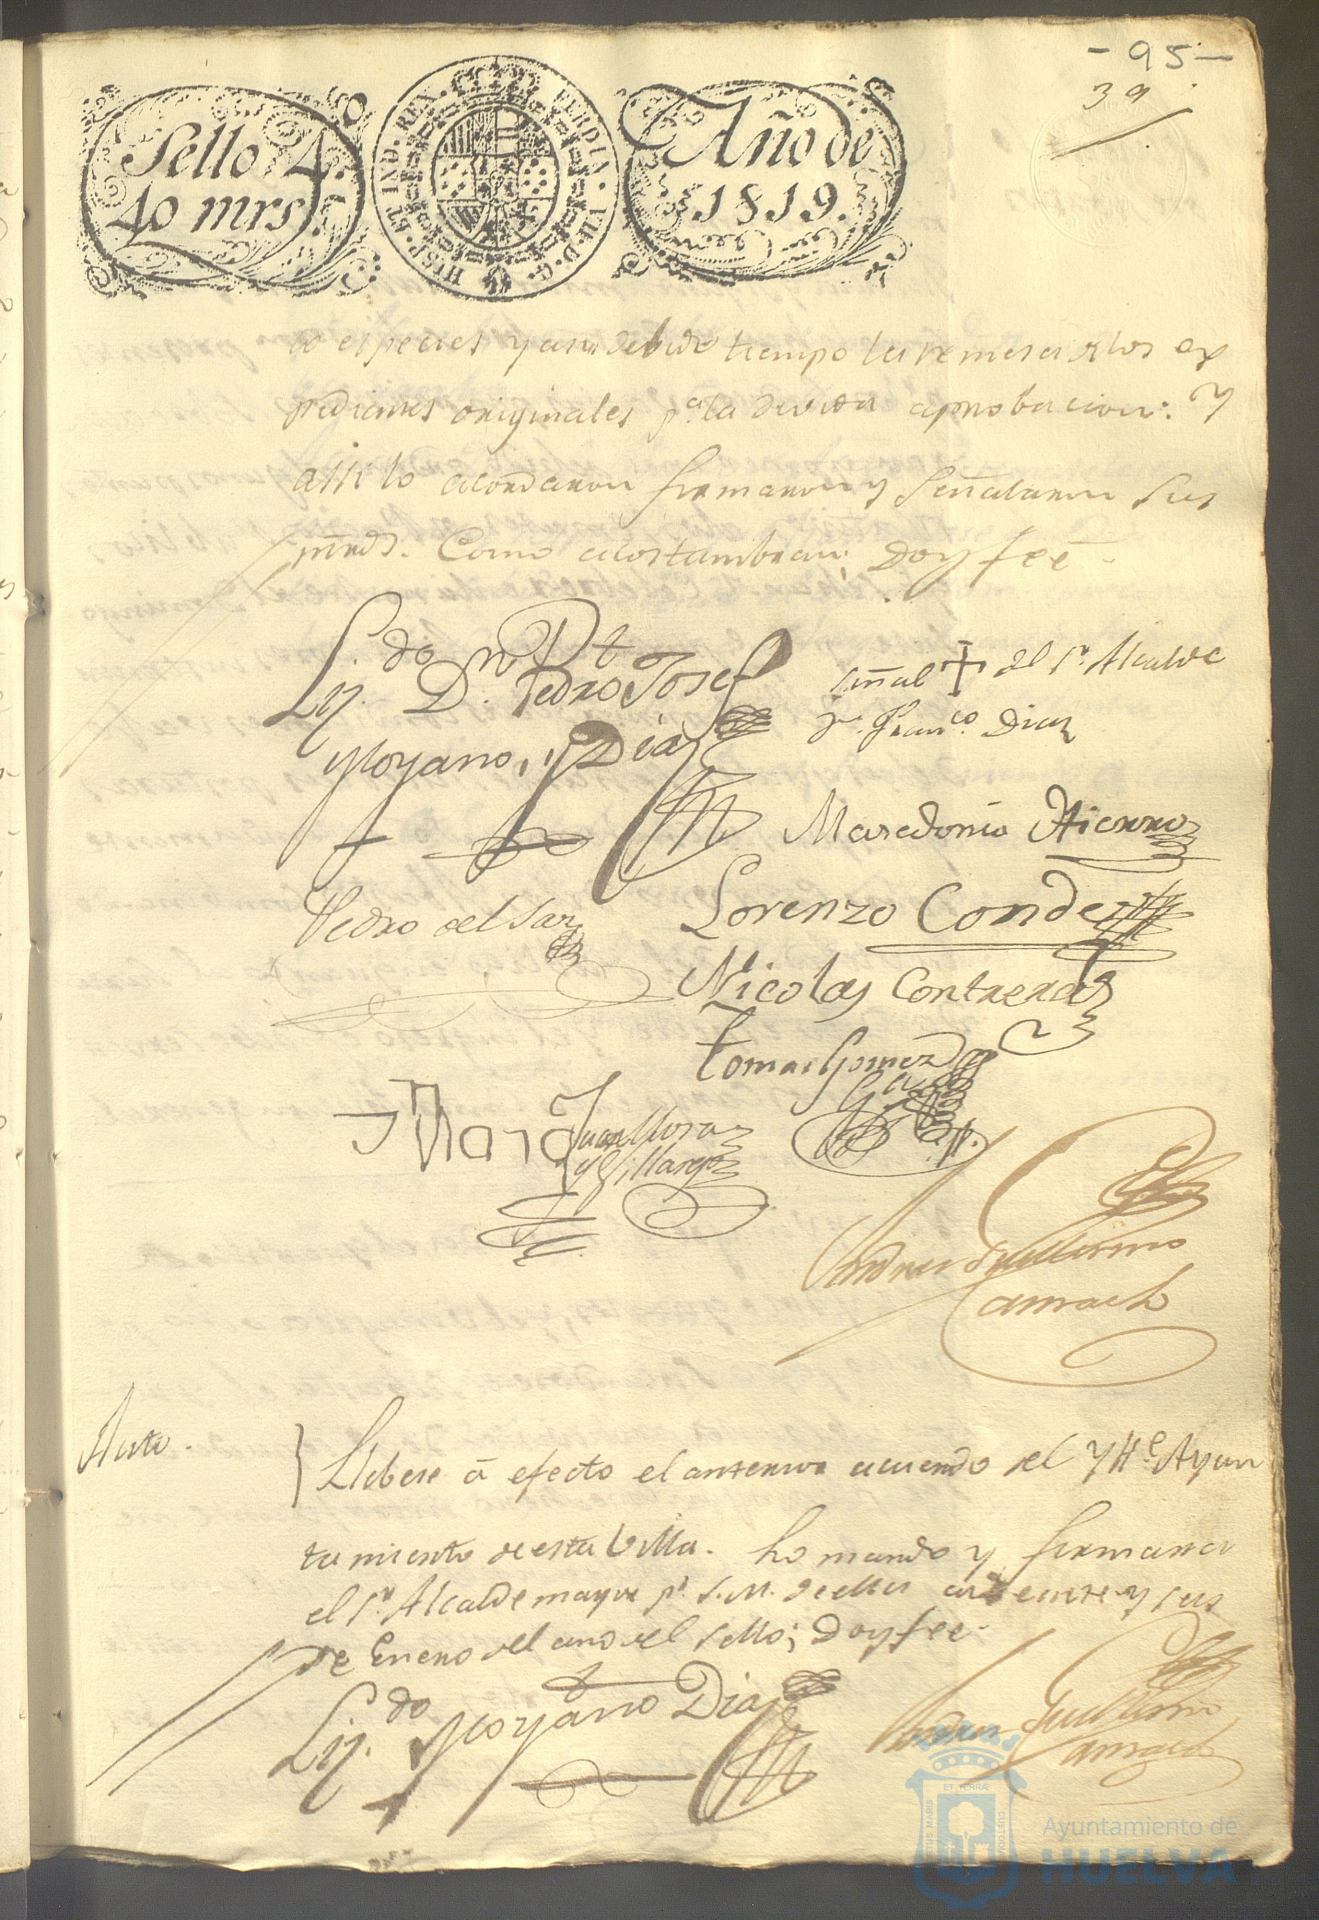 - 95 -
39
Sello 4.
40 mrs.
HISP. ET IND. REX. FERDIN. VII. D. G.
Año de
1819.
especies y asu debido tiempo la remesa de los ex
pedientes originales pa. la devida aprobacion: Y
assi lo acordaron firmaron y señalaron sus
mrds. Como acostumbran; Doy fee
Lizdo. Dn. Pedro Josef
Moyano, y Diaz
señal + del Sr. Alcalde
Franco. Diaz
Macedonio Hierro
Pedro del Saz
Lorenzo Conde
Nicolas Contreras
Tomas Gomez
Juan Mora
y Villarejo
Andres Guillermo
Camacho
Auto.
Llebese á efecto el anterior acuerdo del Ylle. Ayun
tamiento de esta Villa. Lo mando y firmara
el Sr. Alcalde mayor pr. S.M. de ella a veinte y seis
de Enero del ano del sello; Doy fee
Lizdo. Moyano Diaz
Andres Guillermo
Camacho
ET TERRÆ
PORTUS MARIS
CUSTODIA
Ayuntamiento de
HUELVA